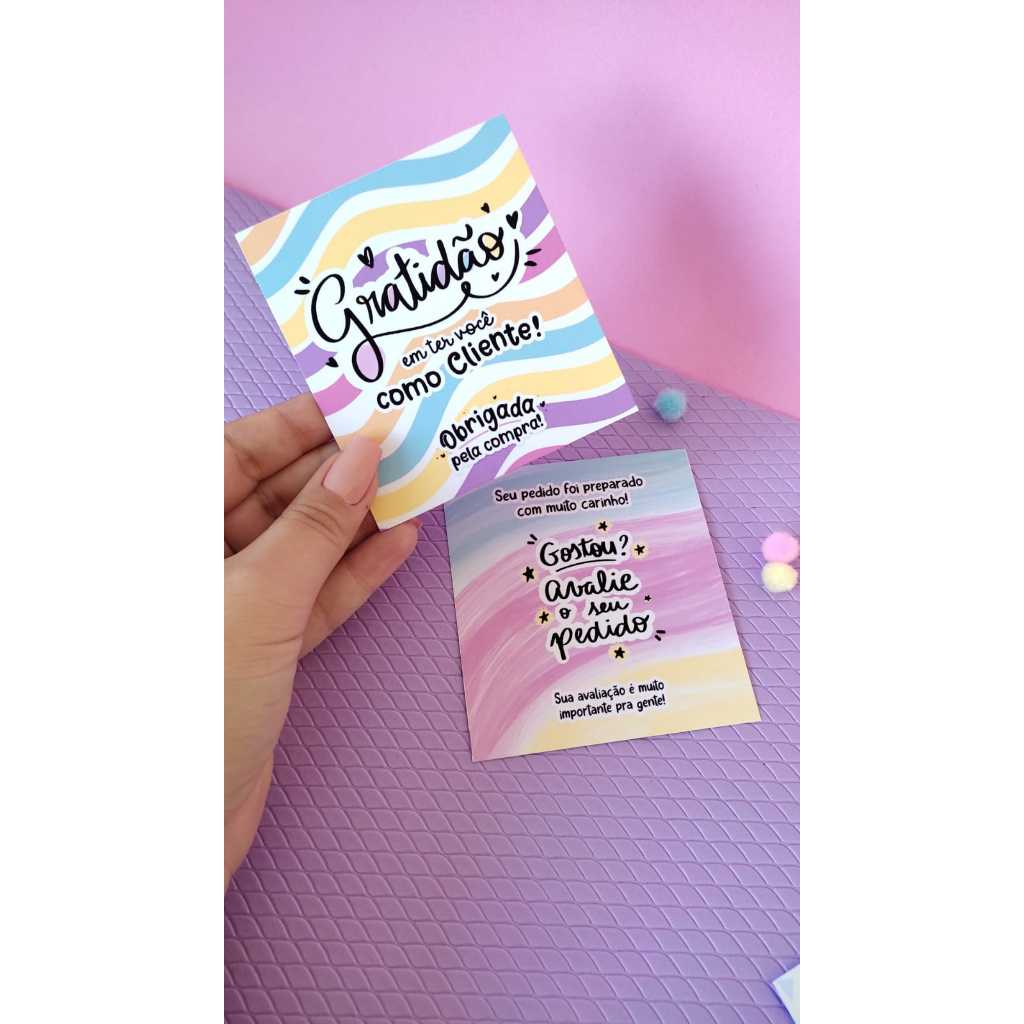 Gratidão
em ter você
como Cliente!
Obrigada
pela compra!
Seu pedido foi preparado
com muito carinho!
Gostou?
Avalie
o seu
pedido
Sua avaliação é muito
importante pra gente!